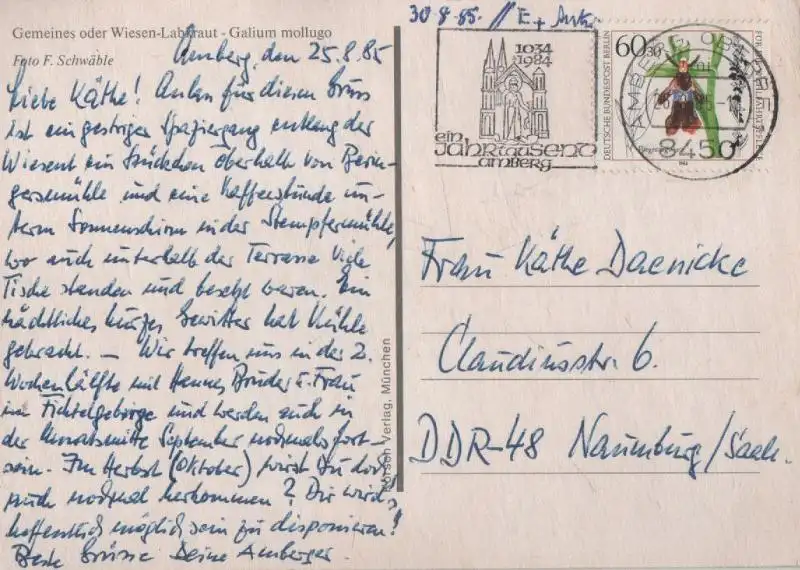 Gemeines oder Wiesen-Labkraut - Galium mollugo
Foto F. Schwäble
Amberg, den 25.8.85
Liebe Käthe! Anlaß für diesen Gruss
ist ein gestriger Spaziergang entlang der
Wiesent ein Stückchen oberhalb von Berin-
gersmühle und eine Kaffeestunde un-
term Sonnenschirm in der Stempfermühle,
wo auch unterhalb der Terrasse viele
Tische standen und besetzt waren. Ein
nächtliches kurzes Gewitter hat Kühle
gebracht. – Wir treffen uns in der 2.
Wochenhälfte mit Hannes Bruder u. Frau
im Fichtelgebirge und werden auch in
der Monatsmitte September nochmals fort-
sein. Im Herbst (Oktober) wirst Du doch
auch nochmal herkommen? Dir wird's
hoffentlich möglich sein zu disponieren!
Beste Grüsse Deine Amberger.
Korsch Verlag, München
30.8.85. // E. + Antw.
1034
1984
ein
JAHRtausend
amberg
60+30
DEUTSCHE BUNDESPOST BERLIN
FÜR DIE WOHLFAHRTSPFLEGE
1984
AMBERG, OBERPF
8450
Frau Käthe Daenicke
Claudiusstr. 6.
DDR-48 Naumburg/Saale.